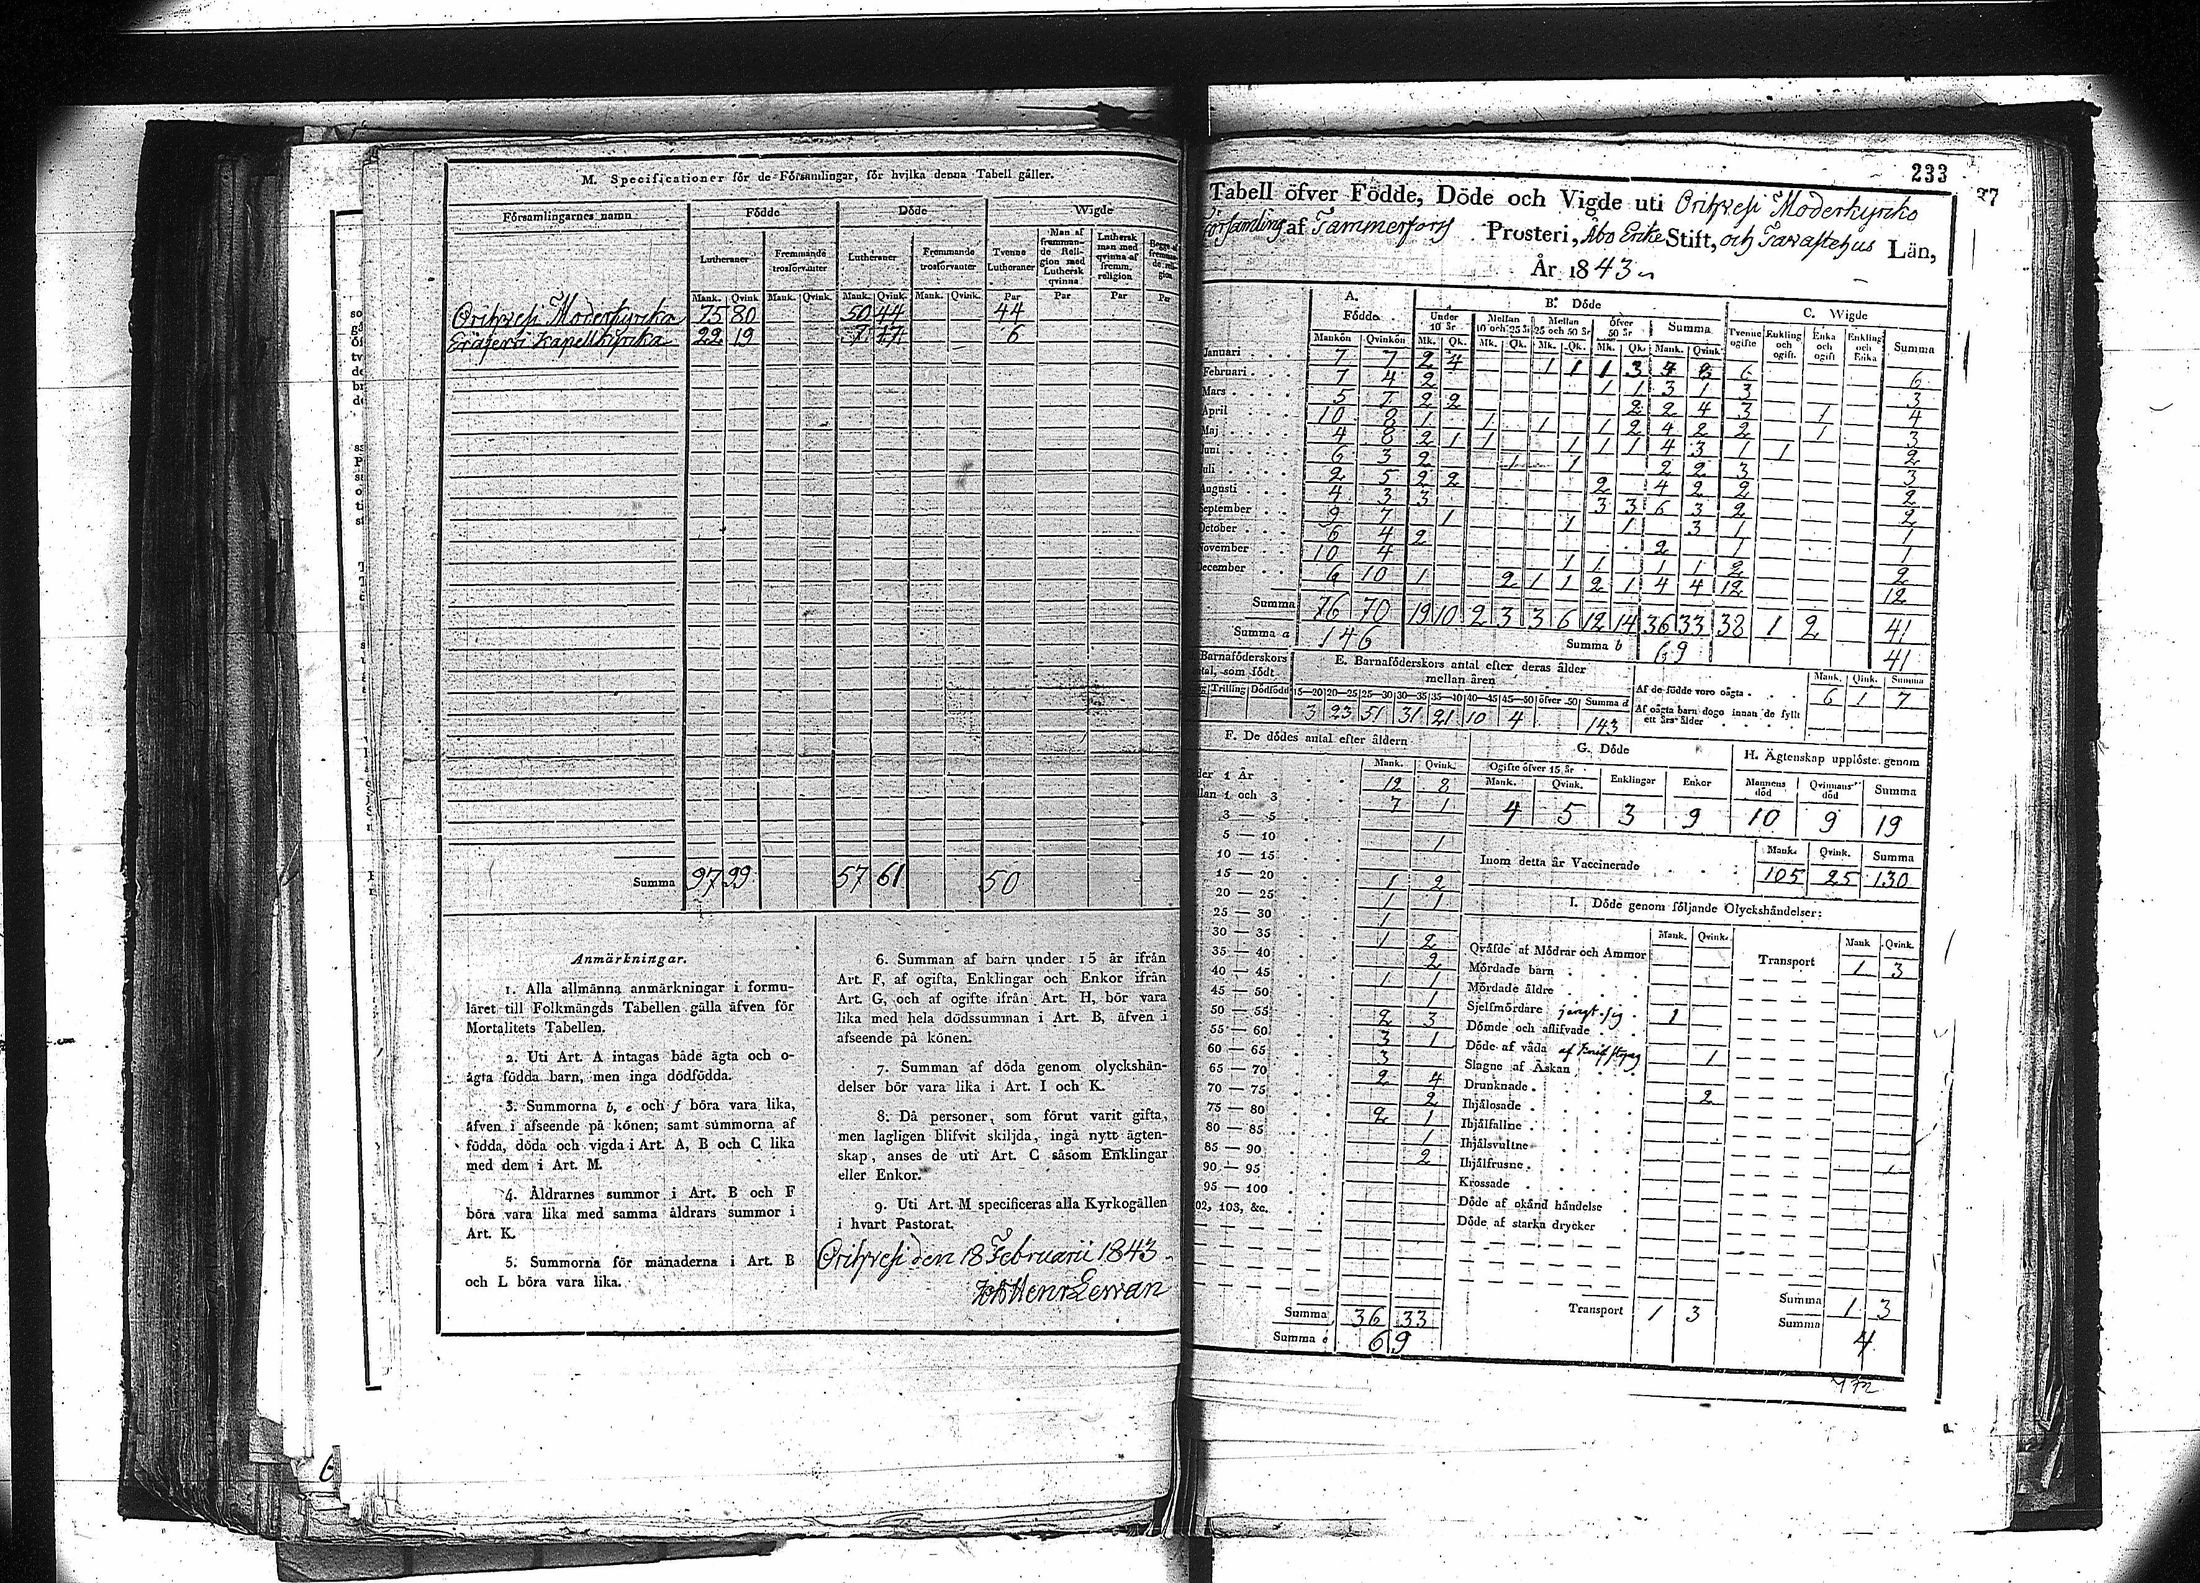 M. Specificationer för de Församlingar, för hvilka denna Tabell gäller.
Församlingarnes namn
Födde
Döde
Wigde
Lutheraner
Fremmande trosförvanter
Lutheraner
Fremmande trosförvanter
Tvenne Lutheraner
Man af fremmande Religion med Luthersk qvinna
Luthersk man med qvinna af fremm. religion
Mank. Qvink. Mank. Qvink. Mank. Qvink. Mank. Qvink. Par Par Par Par
Orihvesi Moderkyrka 75 80 50 44 44
Eräjervi Kapellkyrka 22 19 7 17 6
Summa 97 99 57 61 50
Anmärkningar.
1. Alla allmänna anmärkningar i formu-
läret till Folkmängds Tabellen gälla äfven för
Mortalitets Tabellen.
2. Uti Art. A intagas både ägta och o-
ägta födda barn, men inga dödfödda.
3. Summorna b, e och f böra vara lika,
äfven i afseende på könen; samt summorna af
födda, döda och vigda i Art. A, B och C lika
med dem i Art. M.
4. Åldrarnes summor i Art. B och F
böra vara lika med samma åldrars summor i
Art. K.
5. Summorna för månaderna i Art. B
och L böra vara lika.
6. Summan af barn under 15 år ifrån
Art. F, af ogifta, Enklingar och Enkor ifrån
Art. G, och af ogifte ifrån Art. H, bör vara
lika med hela dödssumman i Art. B, äfven i
afseende på könen.
7. Summan af döda genom olyckshän-
delser bör vara lika i Art. I och K.
8. Då personer, som förut varit gifta,
men lagligen blifvit skiljda, ingå nytt ägten-
skap, anses de uti Art. C såsom Enklingar
eller Enkor.
9. Uti Art. M specificeras alla Kyrkogällen
i hvart Pastorat.
Orihvesi den 18 Februarii 1843
233
27
Tabell öfver Födde, Döde och Vigde uti Orihvesi Moderkyrko
Församling af Tammerfors Prosteri, Åbo Erke Stift, och Tavastehus Län,
År 1843
A. Födde
B. Döde
C. Wigde
Mankön Qvinkön
Under 10 år
Mellan 10 och 25 år
Mellan 25 och 50 år
Öfver 50 år
Summa
Tvenne ogifte
Enkling och ogift.
Enka och ogift
Enkling och Enka
Summa
Januari 7 7 2 4 1 1 1 3 4 8 6 6
Februari 7 4 2 1 1 3 1 3 3
Mars 5 7 2 2 2 2 4 3 1 4
April 10 8 1 1 1 1 2 4 2 2 1 3
Maj 4 8 2 1 1 1 1 1 4 3 1 1 2
Juni 6 3 2 1 1 2 2 3 3
Juli 2 5 2 2 2 4 2 2 2
Augusti 4 3 3 3 3 6 3 2 2
September 9 7 1 1 1 3 1 1
October 6 4 2 2 1 1
November 10 4 1 1 1 1 2 2
December 6 10 1 2 1 1 2 1 4 4 12 12
Summa 76 70 19 10 2 3 3 6 12 14 36 33 38 1 2 41
Summa a 146 Summa b 69 41
Barnaföderskors
Trilling Dödfödd
E. Barnaföderskors antal efter deras ålder
mellan åren
15—20 20—25 25—30 30—35 35—40 40—45 45—50 öfver 50 Summa d
3 23 51 31 21 10 4 143
Mank. Qink. Summa
Af de födde voro oägta 6 1 7
Af oägta barn dogo innan de fyllt
ett års ålder
F. De dödes antal efter åldern
Mank. Qvink.
1 År 12 8
1 och 3 7 1
3 — 5
5 — 10 1
10 — 15
15 — 20 1 2
20 — 25 1 1
25 — 30 1
30 — 35 1 2
35 — 40 2
40 — 45 1 1
45 — 50 1
50 — 55 2 3
55 — 60 3 1
60 — 65 3
65 — 70 2 4
70 — 75 2
75 — 80 2 1
80 — 85 1
85 — 90 2
90 — 95
95 — 100
102, 103, &c.
Summa 36 33
Summa e 69
G. Döde
Ogifte öfver 15 år
Mank. Qvink. Enklingar Enkor
4 5 3 9
H. Ägtenskap upplöste genom
Mannens död Qvinnans död Summa
10 9 19
Mank. Qvink. Summa
Inom detta år Vaccinerade 105 25 130
I. Döde genom följande Olyckshändelser:
Mank. Qvink. Mank. Qvink.
Qväfde af Mödrar och Ammor Transport 1 3
Mördade barn
Mördade äldre
Sjelfmördare 1
Dömde och aflifvade
Döde af våda 1
Slagne af Åskan
Drunknade 2
Ihjälosade
Ihjälfallne
Ihjälsvultne
Ihjälfrusne
Krossade
Döde af okänd händelse
Döde af starka drycker
Transport 1 3
Summa 1 3
Summa 4